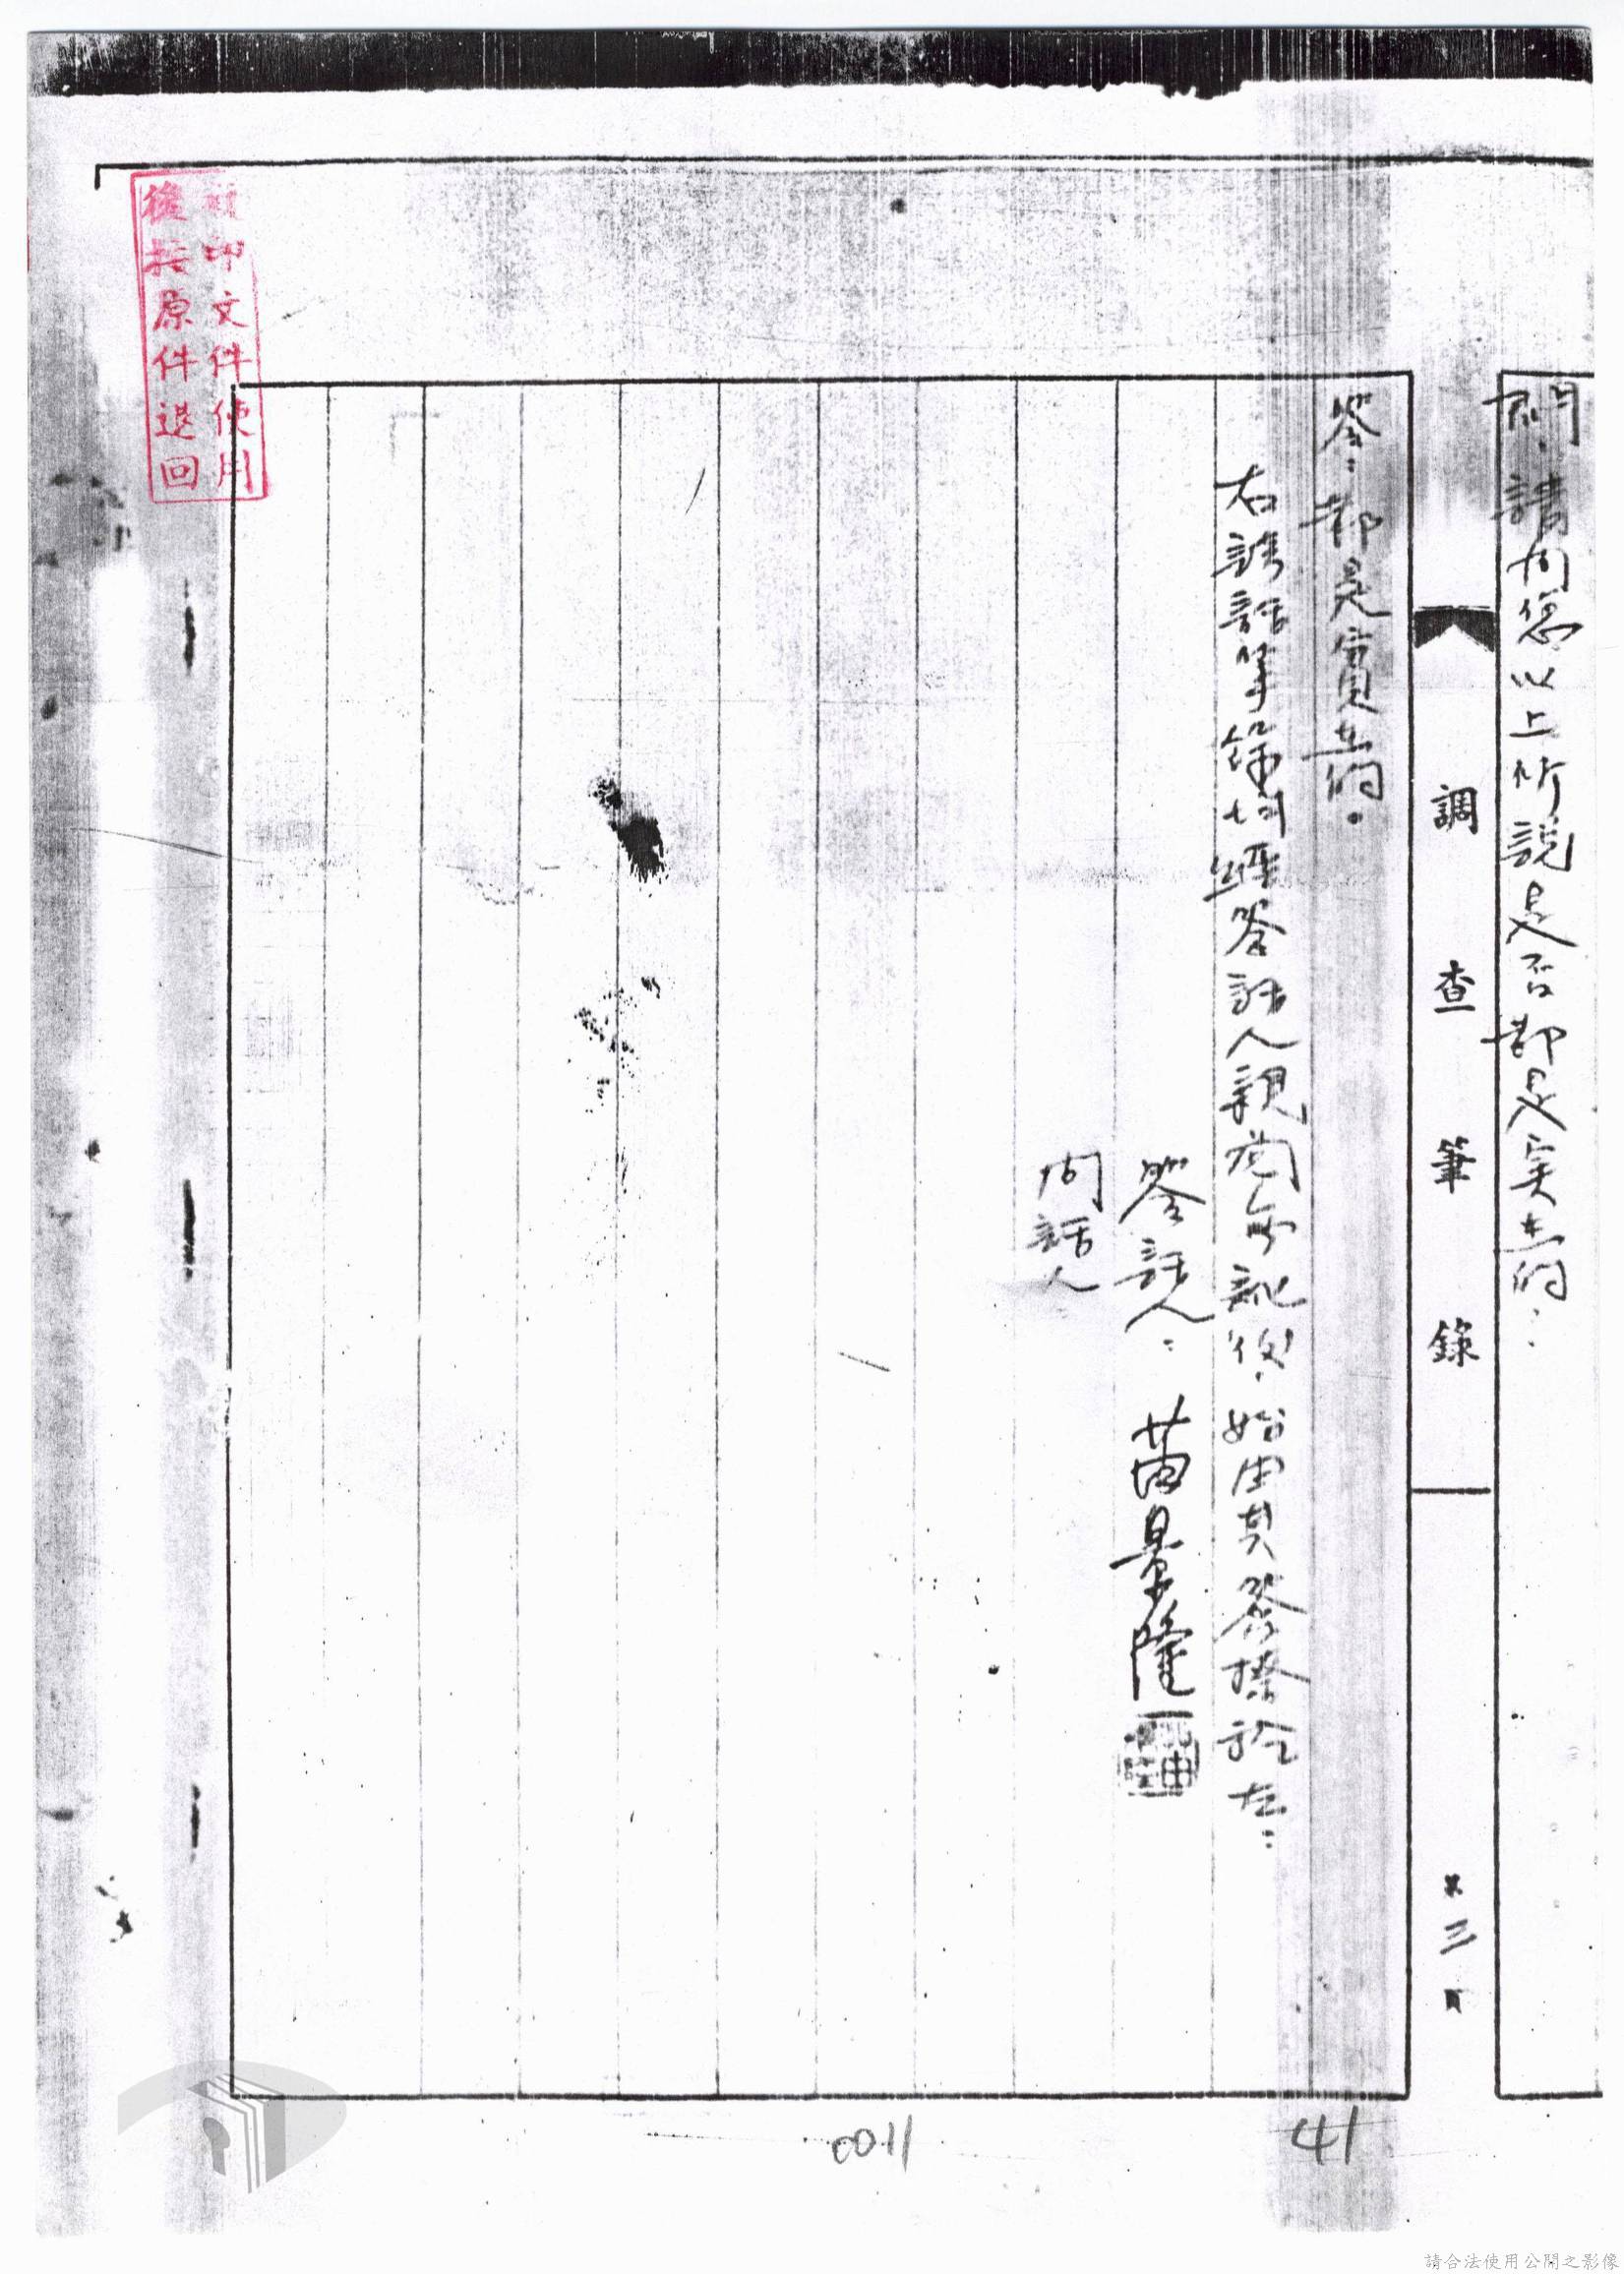 問：請問您以上所說是否都是實在的：
調查筆錄
第三頁
答：都是實在的。
右談話筆錄均經答話人親閱無訛後，始由其簽押於左：
答話人：苗景隆
問話人
印文件使用
後按原件退回
0011
41
請合法使用公開之影像